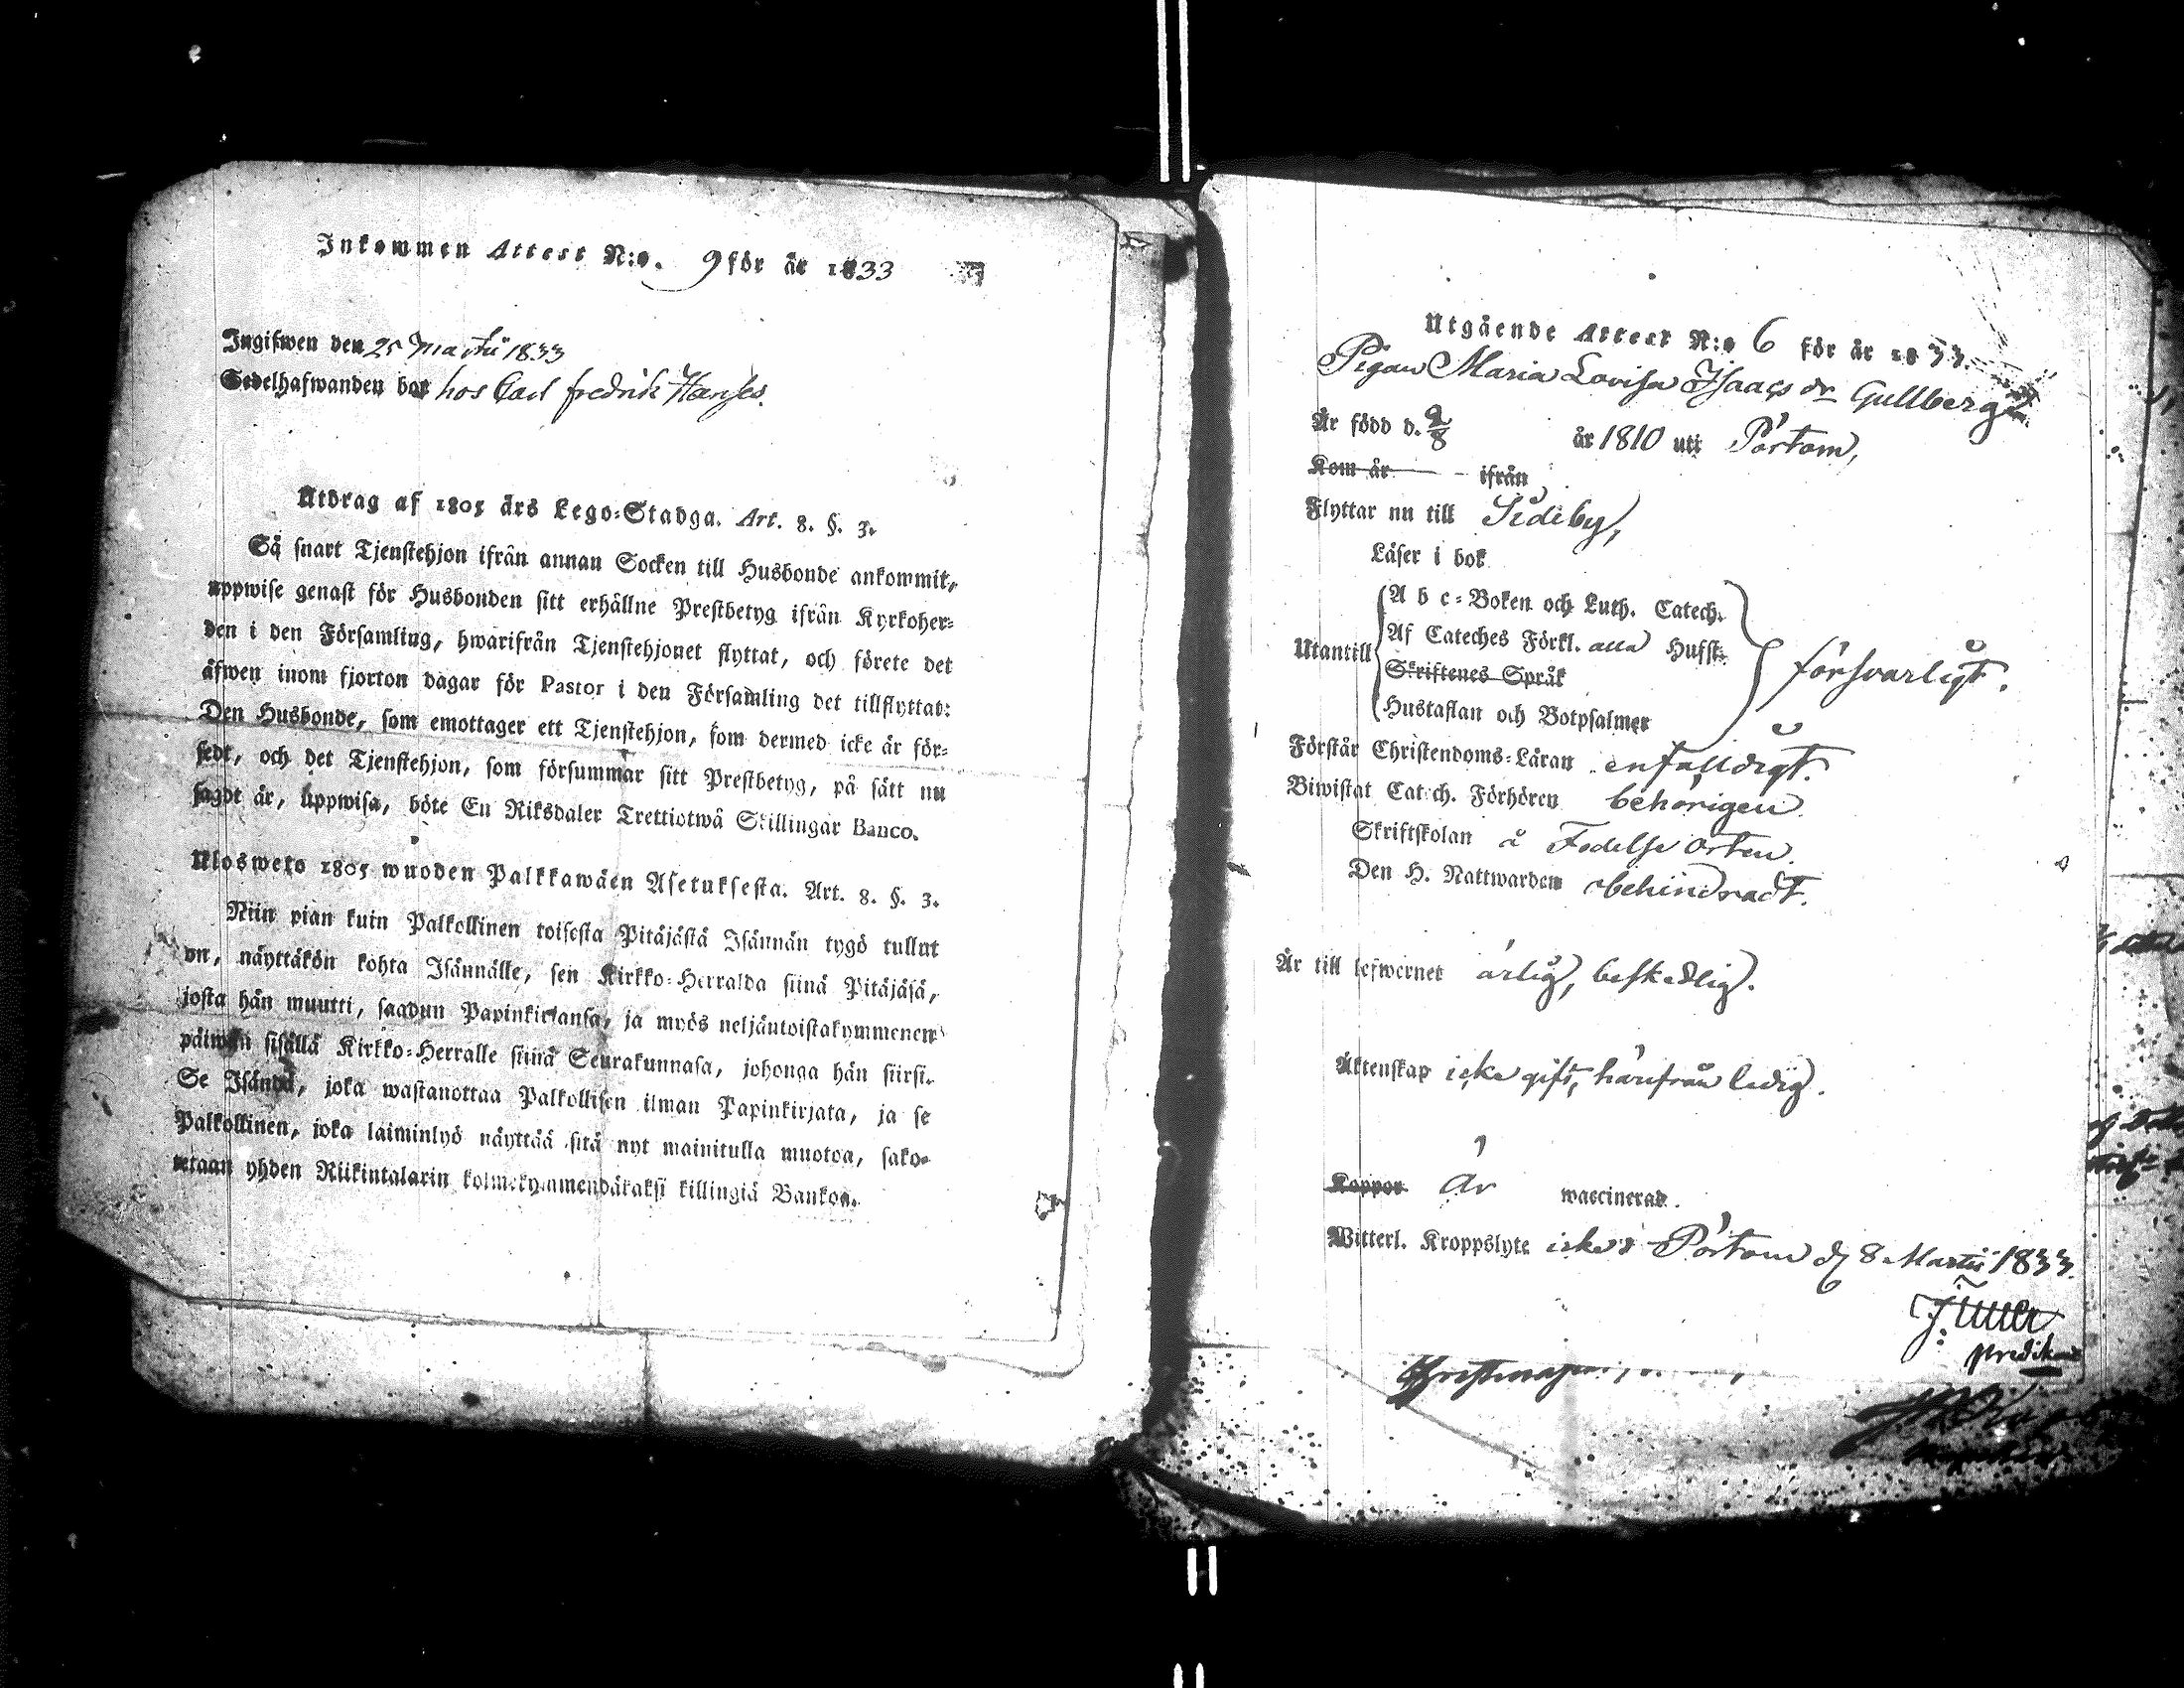 Inkommen Attest N:o. 9 för år 1833
Ingifwen den 25 Martii 1833
Sedelhafwanden bor hos Carl fredrik Hanses.
Utdrag af 1805 års Lego-Stadga. Art. 8. §. 3.
Så snart Tjenstehjon ifrån annan Socken till Husbonde ankommit,
uppwise genast för Husbonden sitt erhållne Prestbetyg ifrån Kyrkoher-
den i den Församling, hwarifrån Tjenstehjonet flyttat, och förete det
äfwen inom fjorton dagar för Pastor i den Församling det tillflyttat:
Den Husbonde, som emottager ett Tjenstehjon, som dermed icke är för-
sedt, och det Tjenstehjon, som försummar sitt Prestbetyg, på sätt nu
sagdt är, uppwisa, böte En Riksdaler Trettiotwå Skillingar Banco.
Uloswetö 1805 wuoden Palkkawäen Asetuksesta. Art. 8. §. 3.
Niin pian kuin Palkollinen toisesta Pitäjästä Isännän tygö tullut
on, näyttäkön kohta Isännälle, sen Kirkko-Herralda siinä Pitäjäsä,
josta hän muutti, saadun Papinkirjansa, ja myös neljäntoistakymmenen
päiwän sisällä Kirkko-Herralle siinä Seurakunnasa, johonga hän siirsi.
Se Isändä, joka wastanottaa Palkollisen ilman Papinkirjata, ja se
Palkollinen, joka laiminlyö näyttää sitä nyt mainitulla muotoa, sako-
tetaan yhden Riikintalarin kolmekymmendäkaksi killingiä Bankoa.
Utgående Attest N:o 6 för år 1833.
Pigan Maria Lovisa Isaacs dr Gullberg
Är född d. 2/8 år 1810 uti Pörtom,
Kom år ifrån
Flyttar nu till Sideby,
Läser i bok
A b c-Boken och Luth. Catech.
Utantill Af Cateches Förkl. alla Hufst. försvarligt.
Skriftenes Språk
Hustaflan och Botpsalmer
Förstår Christendoms-Läran enfalldigt.
Biwistat Catech. Förhören behörigen
Skriftskolan å Födelse orten.
Den H. Nattwarden obehindradt.
Är till lefwernet ärlig, beskedlig.
Äktenskap icke gift, härifrån ledig.
Koppor Är waccinerad.
Witterl. Kroppslyte icke: Pörtom d 8 Martii 1833.